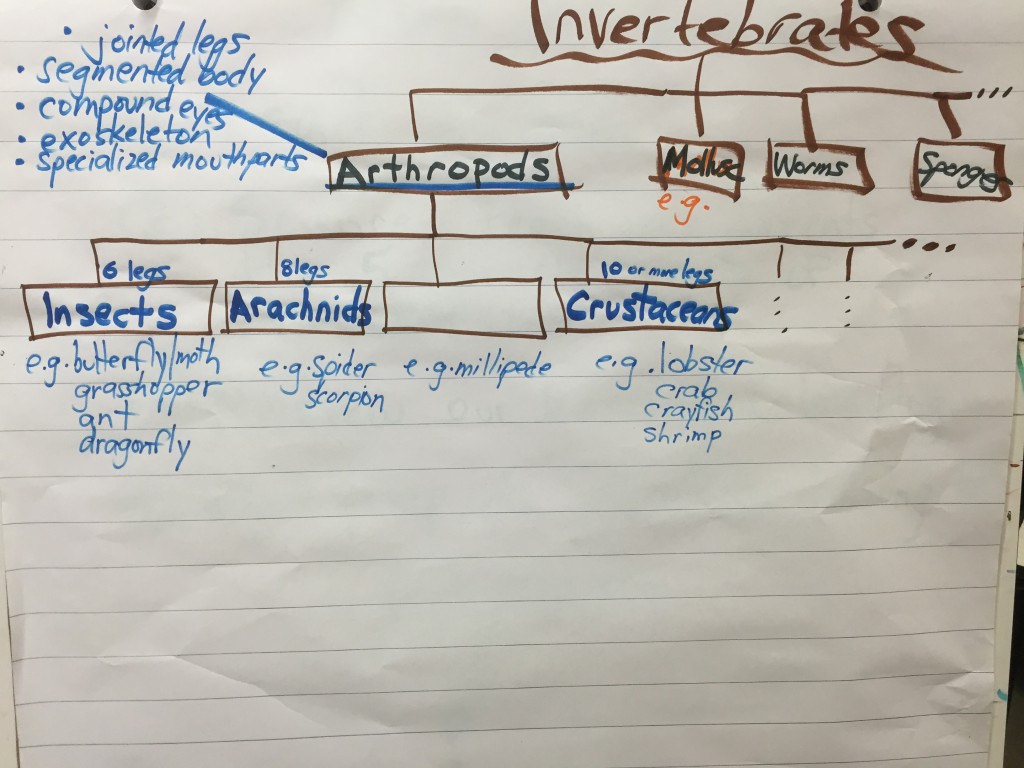 Invertebrates
• joined legs
• segmented body
• compound eyes
• exoskeleton
• specialized mouthparts
Arthropods
Mollusc
Worms
Sponges
e.g.
6 legs
8 legs
10 or more legs
Insects
Arachnids
Crustaceans
e.g. butterfly/moth
grasshopper
ant
dragonfly
e.g. Spider
scorpion
e.g. millipede
e.g. lobster
crab
crayfish
shrimp